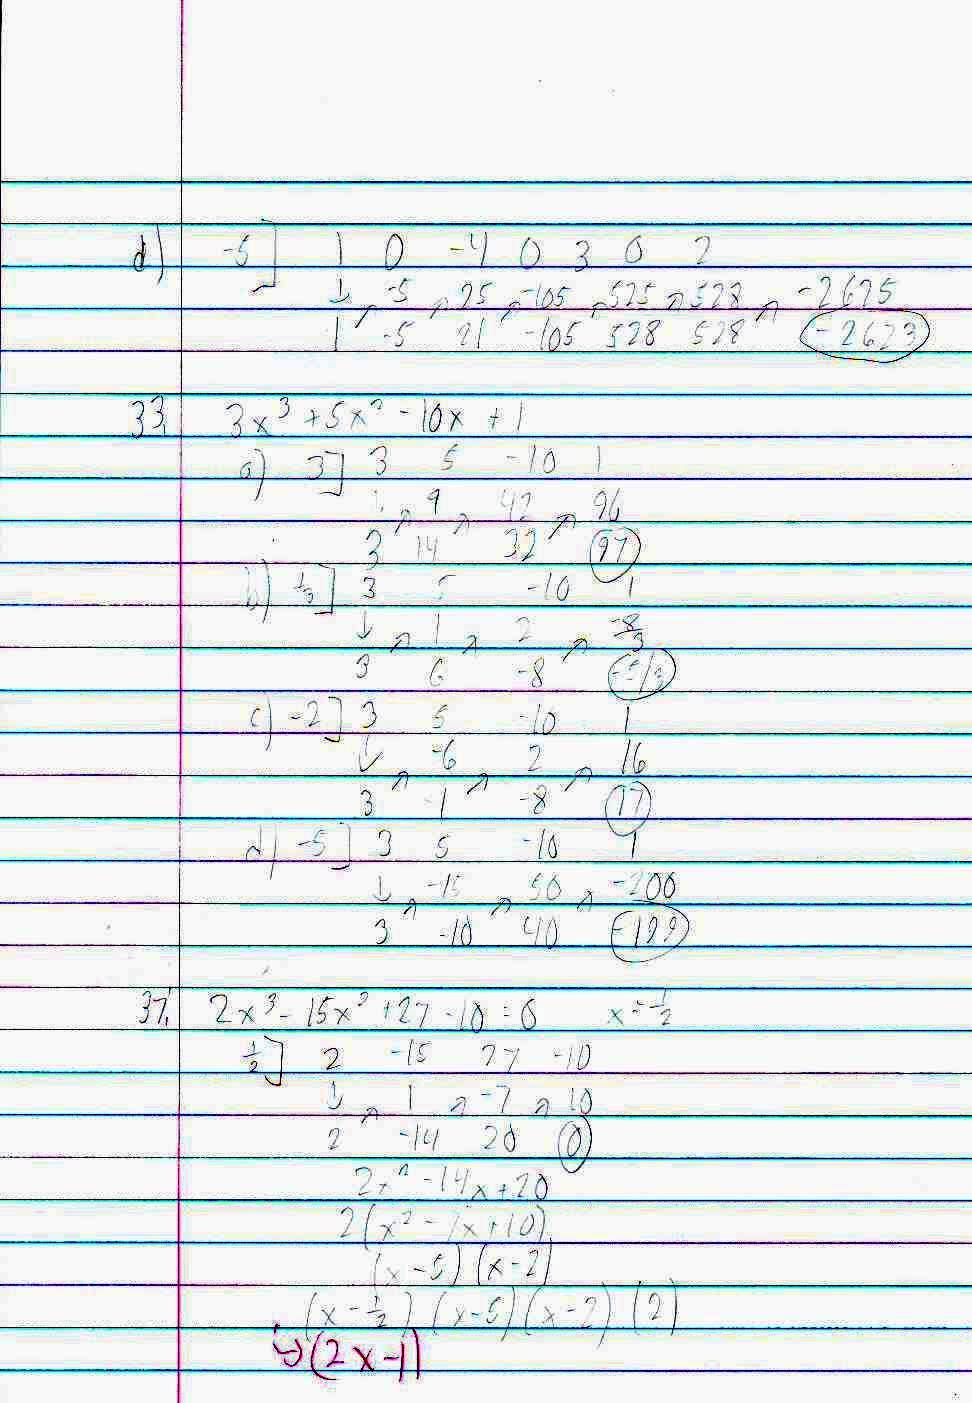 d) -5] 1 0 -4 0 3 0 2
↓ -5 ↗ 25 ↗ -105 ↗ 525 ↗ 528 ↗ -2625
1 ↗ -5 21 -105 528 528 -2623
33. 3x³ + 5x² - 10x + 1
a) 3] 3 5 -10 1
↓ ↗ 9 ↗ 42 ↗ 96
3 14 32 97
b) 1/3] 3 5 -10 1
↓ ↗ 1 ↗ 2 ↗ -8/3
3 6 -8 -5/3
c) -2] 3 5 -10 1
↓ ↗ -6 ↗ 2 ↗ 16
3 -1 -8 17
d) -5] 3 5 -10 1
↓ ↗ -15 ↗ 50 ↗ -200
3 -10 40 -199
37. 2x³ - 15x² + 27 - 10 = 0 x = 1/2
1/2] 2 -15 27 -10
↓ ↗ 1 ↗ -7 ↗ 10
2 -14 20 0
2x² - 14x + 20
2(x² - 7x + 10)
(x - 5) (x - 2)
(x - 1/2) (x - 5) (x - 2) (2)
↪ (2x - 1)